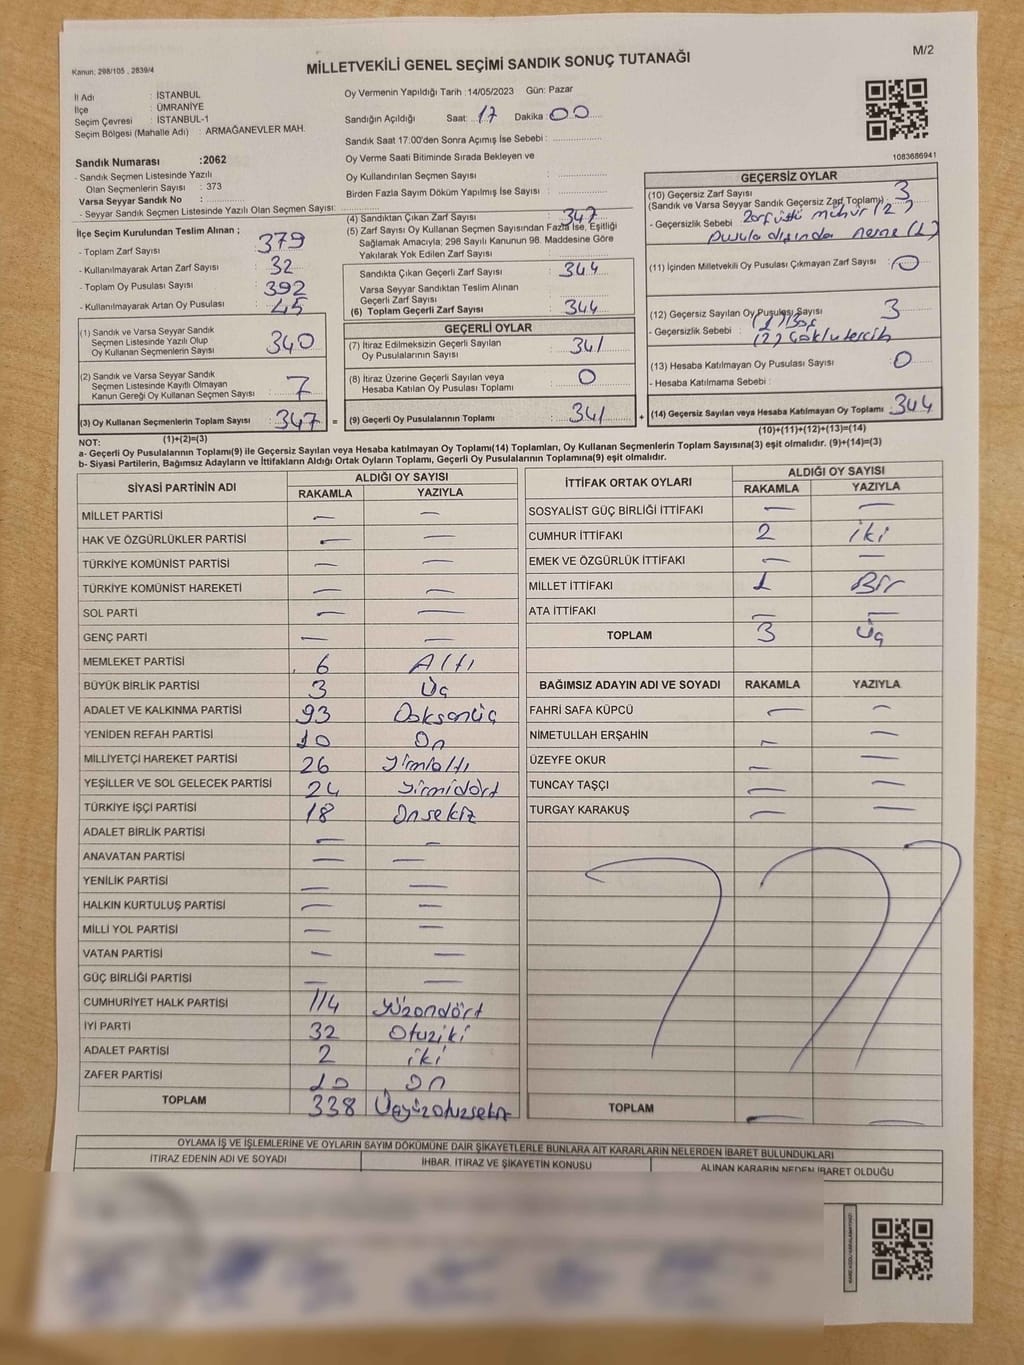 M/2
Kanun: 298/105 , 2839/4
MİLLETVEKİLİ GENEL SEÇİMİ SANDIK SONUÇ TUTANAĞI
İl Adı : İSTANBUL
İlçe : ÜMRANİYE
Seçim Çevresi : İSTANBUL-1
Seçim Bölgesi (Mahalle Adı) : ARMAĞANEVLER MAH.
Sandık Numarası :2062
- Sandık Seçmen Listesinde Yazılı
Olan Seçmenlerin Sayısı : 373
Varsa Seyyar Sandık No :
- Seyyar Sandık Seçmen Listesinde Yazılı Olan Seçmen Sayısı:
Oy Vermenin Yapıldığı Tarih :14/05/2023 Gün: Pazar
Sandığın Açıldığı Saat: 17 Dakika : 00
Sandık Saat 17.00'den Sonra Açımış İse Sebebi :
Oy Verme Saati Bitiminde Sırada Bekleyen ve
Oy Kullandırılan Seçmen Sayısı :
Birden Fazla Sayım Döküm Yapılmış İse Sayısı :
1083686941
İlçe Seçim Kurulundan Teslim Alınan ;
- Toplam Zarf Sayısı : 379
- Kullanılmayarak Artan Zarf Sayısı : 32
- Toplam Oy Pusulası Sayısı : 392
- Kullanılmayarak Artan Oy Pusulası : 45
(1) Sandık ve Varsa Seyyar Sandık
Seçmen Listesinde Yazılı Olup
Oy Kullanan Seçmenlerin Sayısı : 340
(2) Sandık ve Varsa Seyyar Sandık
Seçmen Listesinde Kayıtlı Olmayan
Kanun Gereği Oy Kullanan Seçmen Sayısı : 7
(3) Oy Kullanan Seçmenlerin Toplam Sayısı : 347
(1)+(2)=(3)
(4) Sandıktan Çıkan Zarf Sayısı : 347
(5) Zarf Sayısı Oy Kullanan Seçmen Sayısından Fazla İse, Eşitliği
Sağlamak Amacıyla; 298 Sayılı Kanunun 98. Maddesine Göre
Yakılarak Yok Edilen Zarf Sayısı :
Sandıkta Çıkan Geçerli Zarf Sayısı : 344
Varsa Seyyar Sandıktan Teslim Alınan
Geçerli Zarf Sayısı :
(6) Toplam Geçerli Zarf Sayısı : 344
GEÇERLİ OYLAR
(7) İtiraz Edilmeksizin Geçerli Sayılan
Oy Pusulalarının Sayısı : 341
(8) İtiraz Üzerine Geçerli Sayılan veya
Hesaba Katılan Oy Pusulası Toplamı : 0
= (9) Geçerli Oy Pusulalarının Toplamı : 341 +
GEÇERSİZ OYLAR
(10) Geçersiz Zarf Sayısı : 3
(Sandık ve Varsa Seyyar Sandık Geçersiz Zarf Toplamı)
- Geçersizlik Sebebi : Zarf üstü mühür (2)
pusula dışında nesne (1)
(11) İçinden Milletvekili Oy Pusulası Çıkmayan Zarf Sayısı : 0
(12) Geçersiz Sayılan Oy Pusulası Sayısı : 3
- Geçersizlik Sebebi : (1) Boş
(2) Çoklu tercih
(13) Hesaba Katılmayan Oy Pusulası Sayısı : 0
- Hesaba Katılmama Sebebi :
(14) Geçersiz Sayılan veya Hesaba Katılmayan Oy Toplamı : 344
(10)+(11)+(12)+(13)=(14)
NOT:
a- Geçerli Oy Pusulaları Toplamı(9) ile Geçersiz Sayılan veya Hesaba katılmayan Oy Toplamı(14) Toplamları, Oy Kullanan Seçmenlerin Toplam Sayısına(3) eşit olmalıdır. (9)+(14)=(3)
b- Siyasi Partilerin, Bağımsız Adayların ve İttifakların Aldığı Ortak Oyların Toplamı, Geçerli Oy Pusulalarının Toplamına(9) eşit olmalıdır.
SİYASİ PARTİNİN ADI ALDIĞI OY SAYISI
RAKAMLA YAZIYLA
MİLLET PARTİSİ — —
HAK VE ÖZGÜRLÜKLER PARTİSİ — —
TÜRKİYE KOMÜNİST PARTİSİ — —
TÜRKİYE KOMÜNİST HAREKETİ — —
SOL PARTİ — —
GENÇ PARTİ — —
MEMLEKET PARTİSİ 6 Altı
BÜYÜK BİRLİK PARTİSİ 3 Üç
ADALET VE KALKINMA PARTİSİ 93 Doksanüç
YENİDEN REFAH PARTİSİ 10 On
MİLLİYETÇİ HAREKET PARTİSİ 26 Yirmialtı
YEŞİLLER VE SOL GELECEK PARTİSİ 24 Yirmidört
TÜRKİYE İŞÇİ PARTİSİ 18 Onsekiz
ADALET BİRLİK PARTİSİ — —
ANAVATAN PARTİSİ — —
YENİLİK PARTİSİ — —
HALKIN KURTULUŞ PARTİSİ — —
MİLLİ YOL PARTİSİ — —
VATAN PARTİSİ — —
GÜÇ BİRLİĞİ PARTİSİ — —
CUMHURİYET HALK PARTİSİ 114 Yüzondört
İYİ PARTİ 32 Otuziki
ADALET PARTİSİ 2 iki
ZAFER PARTİSİ 10 On
TOPLAM 338 Üçyüzotuzsekiz
İTTİFAK ORTAK OYLARI ALDIĞI OY SAYISI
RAKAMLA YAZIYLA
SOSYALİST GÜÇ BİRLİĞİ İTTİFAKI — —
CUMHUR İTTİFAKI 2 iki
EMEK VE ÖZGÜRLÜK İTTİFAKI — —
MİLLET İTTİFAKI 1 Bir
ATA İTTİFAKI — —
TOPLAM 3 Üç
BAĞIMSIZ ADAYIN ADI VE SOYADI RAKAMLA YAZIYLA
FAHRİ SAFA KÜPCÜ — —
NİMETULLAH ERŞAHİN — —
ÜZEYFE OKUR — —
TUNCAY TAŞÇI — —
TURGAY KARAKUŞ — —
TOPLAM — —
OYLAMA İŞ VE İŞLEMLERİNE VE OYLARIN SAYIM DÖKÜMÜNE DAİR ŞİKAYETLERLE BUNLARA AİT KARARLARIN NELERDEN İBARET BULUNDUKLARI
İTİRAZ EDENİN ADI VE SOYADI İHBAR, İTİRAZ VE ŞİKAYETİN KONUSU ALINAN KARARIN NEDEN İBARET OLDUĞU